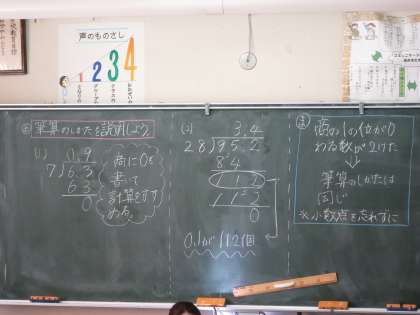 声のものさし
1 2 3 4
め 筆算のしかたを説明しよう
(1)
0.9
7)6.3
63
0
商に0を
書いて
計算をすす
める。
(2)
3.4
28)95.2
84
112
112
0
0.1が112個
ま
商の1の位が0
わる数が2けた
↓
筆算のしかたは
同じ
※小数点を忘れずに